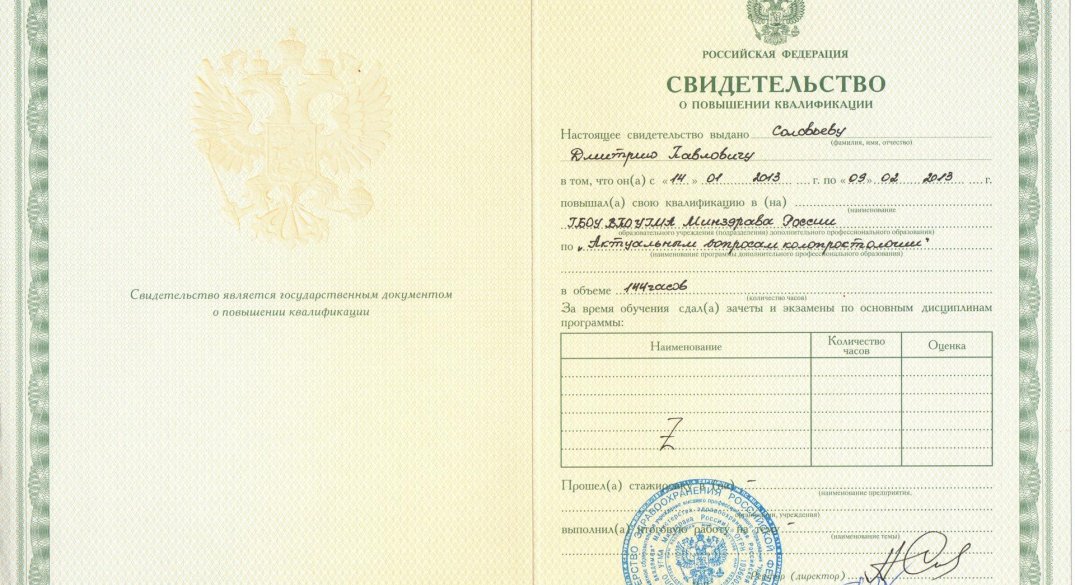 Свидетельство является государственным документом
о повышении квалификации
РОССИЙСКАЯ ФЕДЕРАЦИЯ
СВИДЕТЕЛЬСТВО
О ПОВЫШЕНИИ КВАЛИФИКАЦИИ
Настоящее свидетельство выдано Соловьеву
(фамилия, имя, отчество)
Дмитрию Павловичу
в том, что он(а) с «14» 01 2013 г. по «09» 02 2013 г.
повышал(а) свою квалификацию в (на)
(наименование
ГБОУ ВПО УГМА Минздрава России
образовательного учреждения (подразделения) дополнительного профессионального образования)
по „Актуальным вопросам колопроктологии“
(наименование программы дополнительного профессионального образования)
в объеме 144 часов
(количество часов)
За время обучения сдал(а) зачеты и экзамены по основным дисциплинам
программы:
Наименование Количество часов Оценка
Z
Прошел(а) стажировку в (на) –
(наименование предприятия,
организации, учреждения)
выполнил(а) итоговую работу на тему –
(наименование темы)
(директор)
ЗДРАВООХРАНЕНИЯ РОССИЙСКОЙ